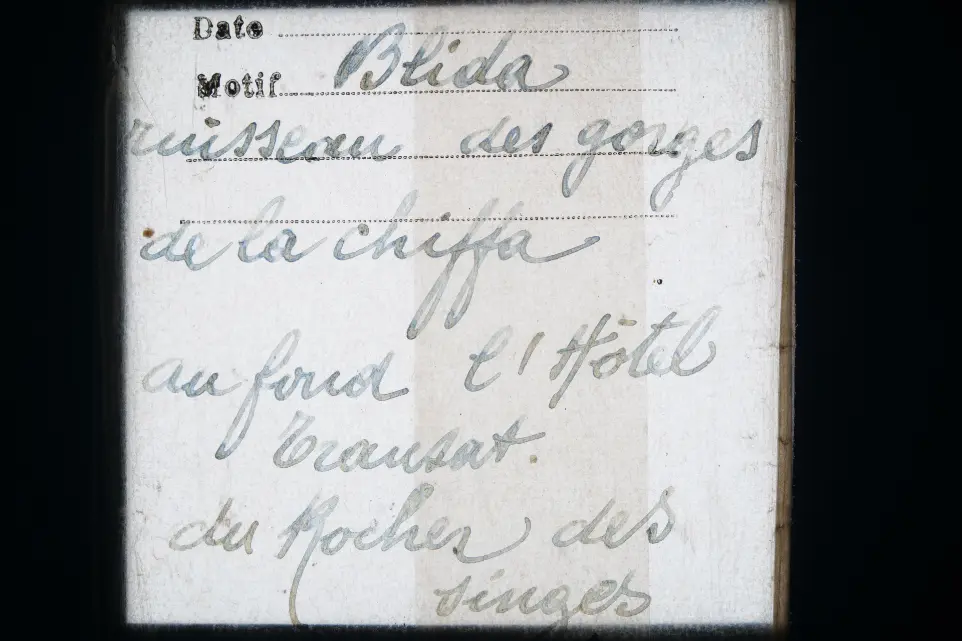 Date
Motif Blida
ruisseau des gorges
de la chiffa
au fond l'Hôtel
Transat.
du Rocher des
singes